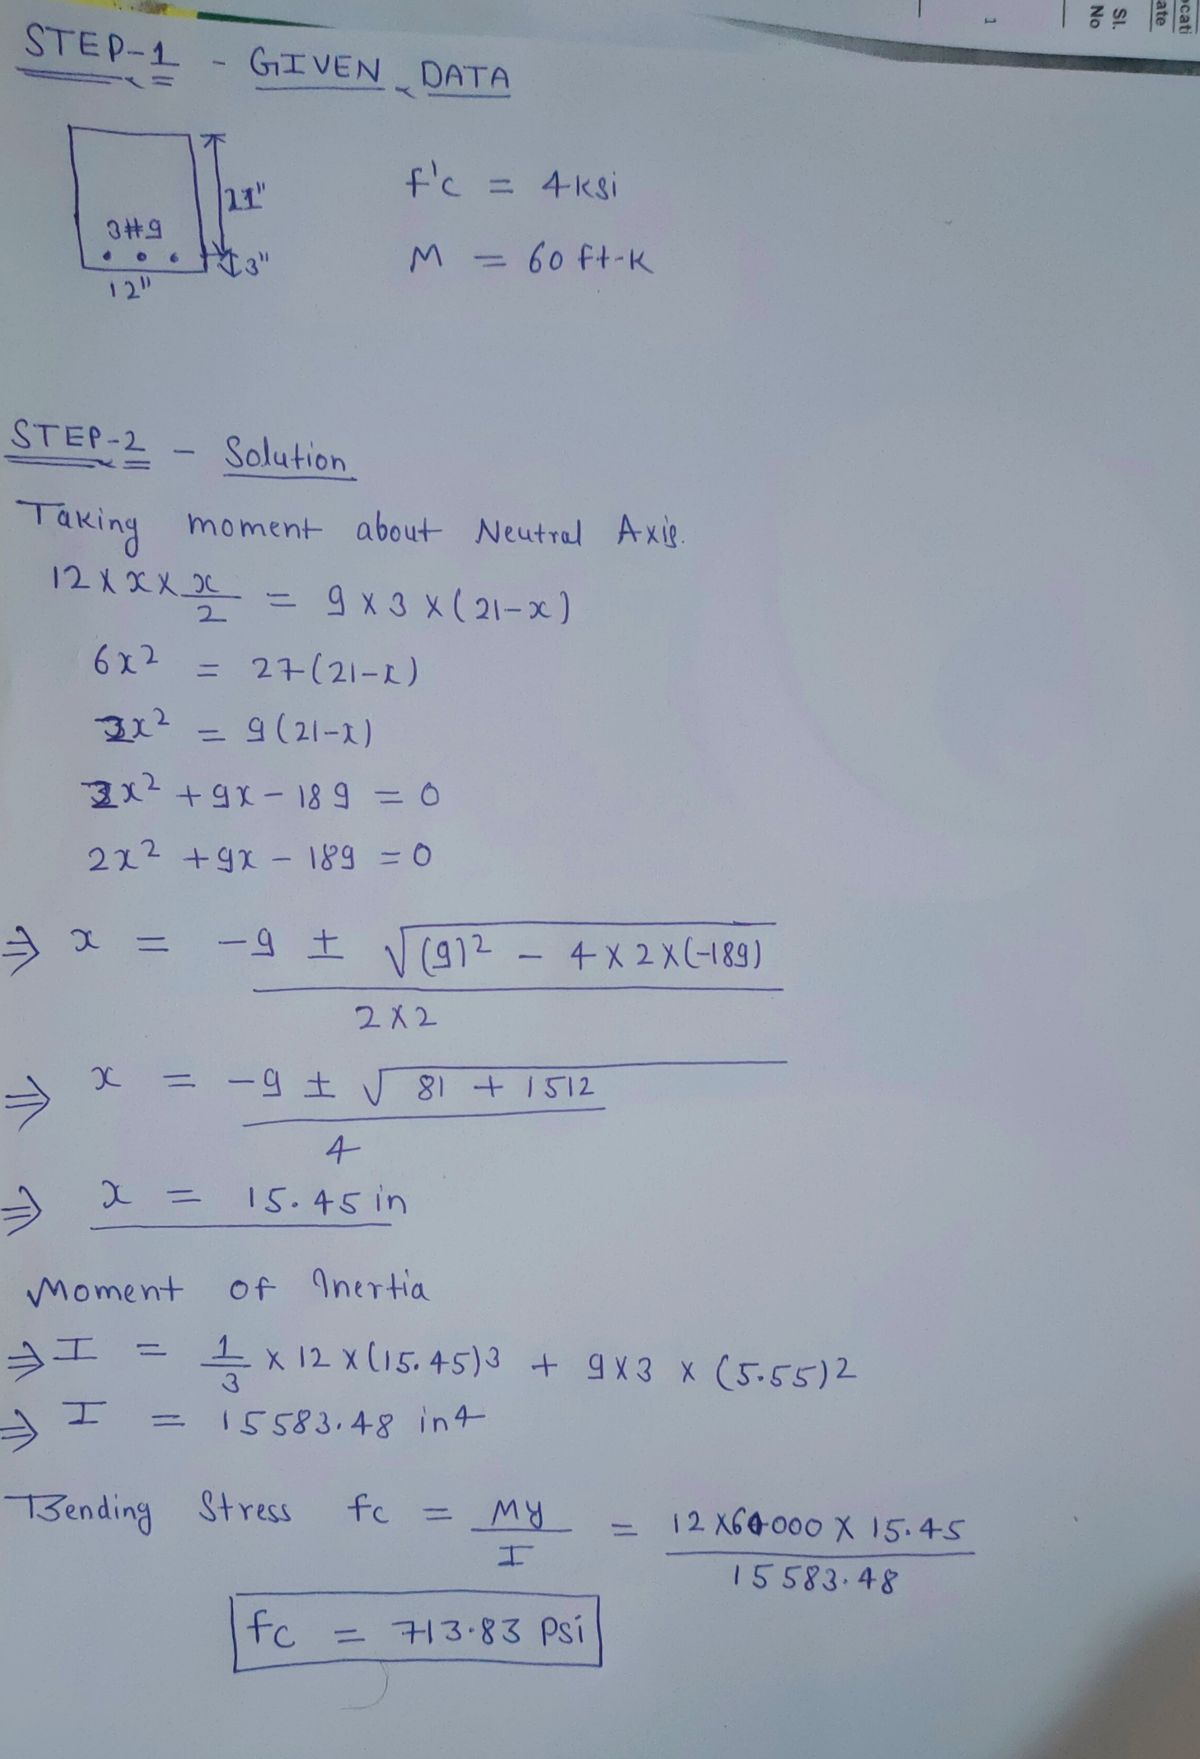 ocati
ate
Sl.
No
1
STEP-1 - GIVEN DATA
21"
3#9
3"
12"
f'c = 4ksi
M = 60 ft-K
STEP-2 - Solution
Taking moment about Neutral Axis.
12 × x × x/2 = 9 × 3 × (21-x)
6x² = 27(21-x)
2x² = 9(21-x)
2x² + 9x - 189 = 0
2x² + 9x - 189 = 0
⇒ x = -9 ± √(9)² - 4×2×(-189)
2×2
⇒ x = -9 ± √81 + 1512
4
⇒ x = 15.45 in
Moment of Inertia
⇒ I = 1/3 × 12 × (15.45)3 + 9×3 × (5.55)2
⇒ I = 15583.48 in4
Bending Stress fc = My/I = 12×60000 × 15.45 / 15583.48
fc = 713.83 Psi